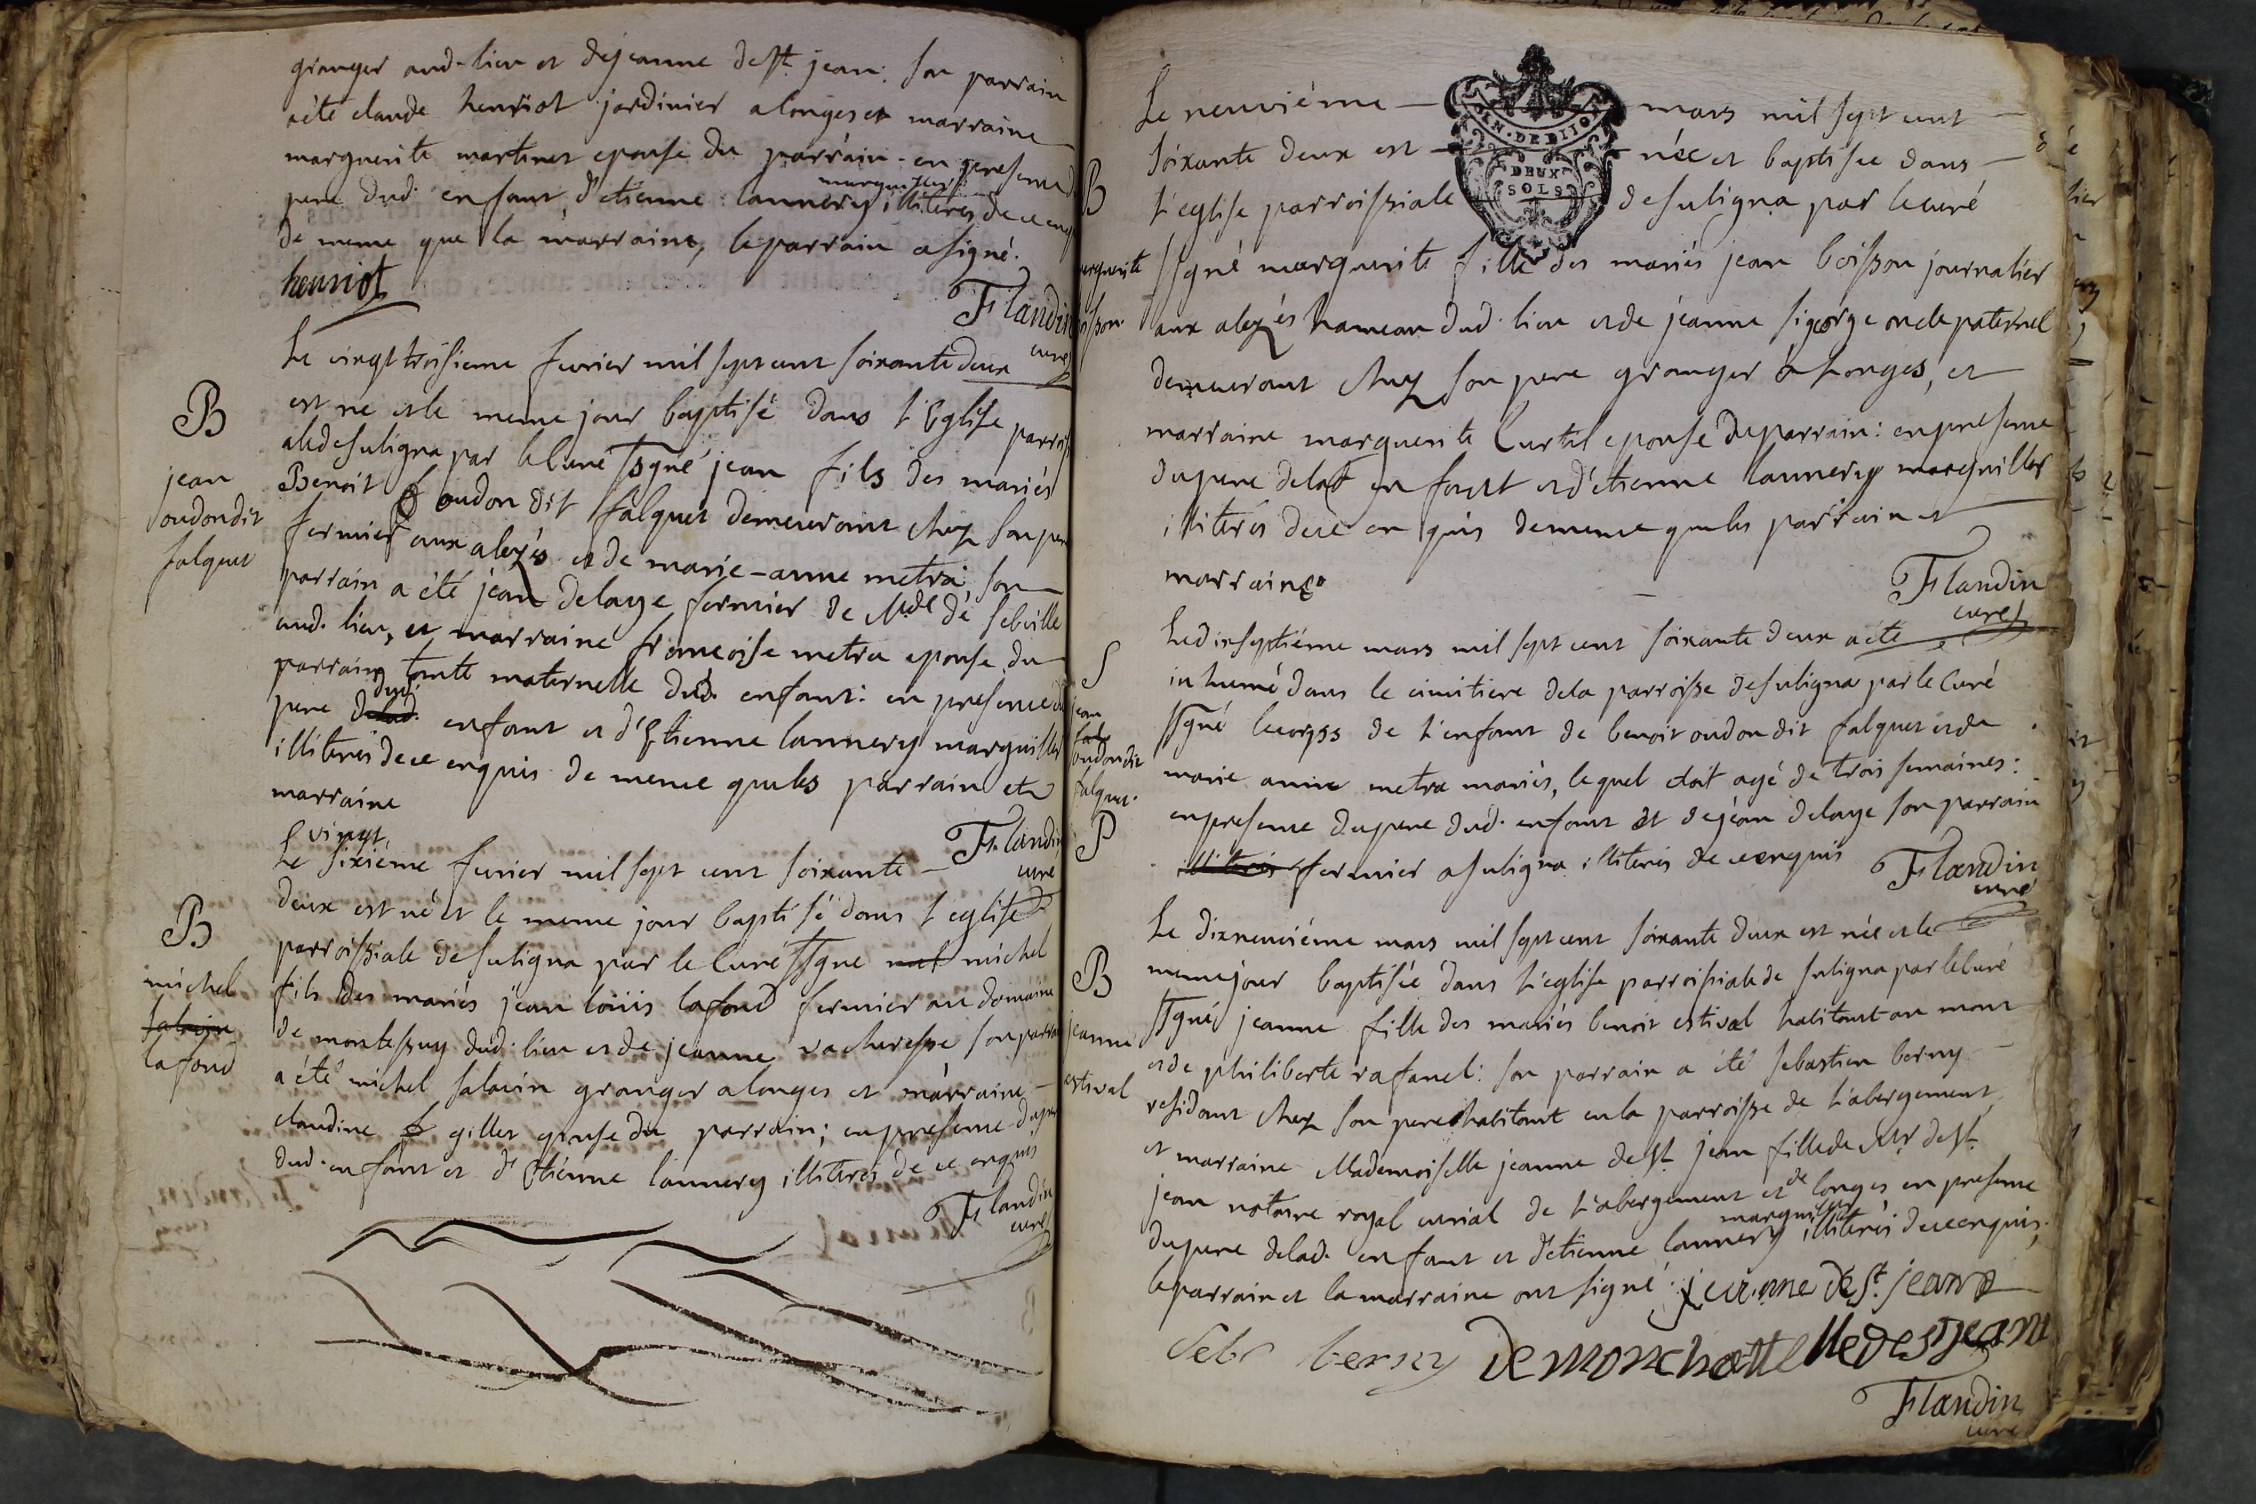 granger aud. lieu et de jeanne de st. jean: son parrain
a été claude henriot jardinier a longes et marraine
marguerite martinet epouse du parrain. en presence d
pere dud. enfant, d'etienne lannery marguillier illiterés de ce enq
de meme que la marraine, le parrain a signé.
henriot
Flandin
curé
Le vingt troisieme fevrier mil sept cent soixante deux
est né et le meme jour baptisé dans l'Eglise parrois
ale de suligna par le Curé ssgné jean fils des mariés
B
jean
oudon dit
falquet
Benoit oudon dit falquet demeurant chez son pere
fermier aux alezés et de marie-anne metra, son
parrain a été jean delaye fermier de Mde de sebeville
aud. lieu, et marraine francoise metra epouse du
parrain tante maternelle dud. enfant: en presence du
pere delad. dud. enfant et d'Etienne lannery marguillier
illiterés de ce enquis de meme que les parrain et
marraine
Flandin
curé
Le vingt sixiéme fevrier mil sept cent soixante
deux est né et le meme jour baptisé dans l'eglise
B
michel
salavin
lafond
parroissiale de suligna par le Curé ssgné michel
fils des mariés jean loüis lafond fermier au domaine
de montessuy dud. lieu et de jeanne vacheresse son parrain
a été michel salavin granger a longes et marraine
claudine gillet epouse du parrain; en presence du pere
dud. enfant et d'Etienne lannery illiterés de ce enquis
Flandin
curé
Le neuviéme mars mil sept cent
GEN. DE DIJON
DEUX
SOLS
soixante deux est née et baptisée dans
B
marguerite
boisson
l'eglise parroissiale de suligna par le curé
ssgné marguerite fille des mariés jean boisson journalier
aux alezés hameau dud. lieu et de jeanne sigeorge oncle paternel
demeurant chez son pere granger à Longes, et
marraine marguerite Curtil epouse du parrain: en presence
du pere delad. enfant et d'etienne lannery marguillier
illiterés de ce enquis de meme que les parrain et
marraine
Flandin
curé
S
jean
oudon dit
falquet
P
Le dixseptiéme mars mil sept cent soixante deux a été
inhumé dans le cimitiere de la parroisse de suligna par le Curé
ssgné le corps de l'enfant de benoit oudon dit falquet et de
marie anne metra mariés, lequel etoit agé de trois semaines:
en presence du pere dud. enfant et de jean delaye son parrain
illiterés fermier a suligna illiterés de ce enquis
Flandin
curé
Le dixneuviéme mars mil sept cent soixante deux est née et le
B
jeanne
estival
meme jour baptisée dans l'eglise parroissiale de suligna par le Curé
ssgné jeanne fille des mariés benoit estival habitant au mont
et de philiberte rafanel: son parrain a été sebastien berny
residant chez son pere habitant en la parroisse de l'abergement,
et marraine Mademoiselle jeanne de st. jean fille de Mr de st.
jean notaire royal curial de l'abergement et de longes en presence
du pere delad. enfant et d'etienne lannery marguillier illiterés de ce enquis,
le parrain et la marraine ont signé. jeanne de St. jean
Seb. berny de monchatel de St jean
Flandin
curé